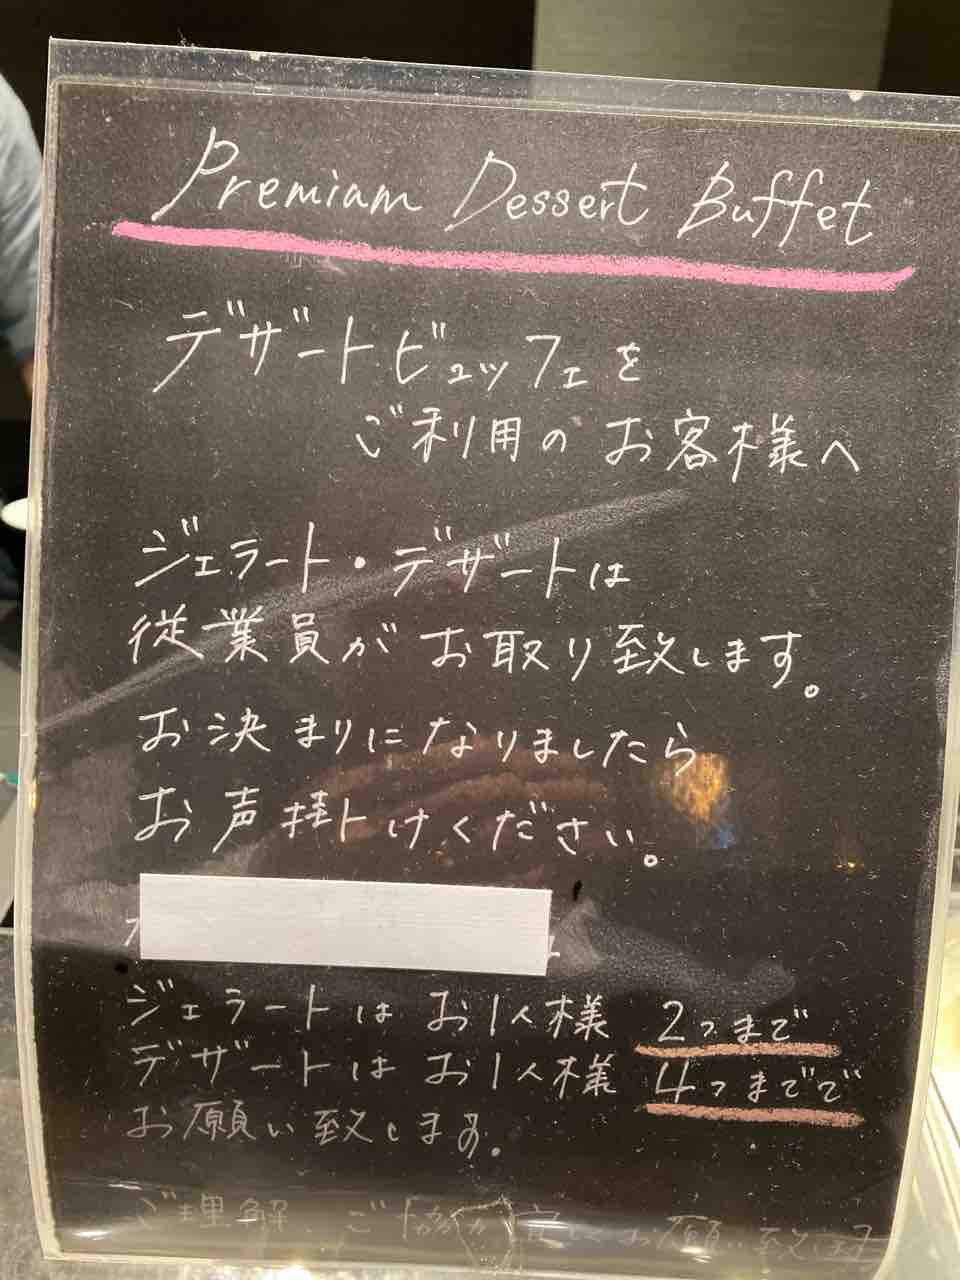 Premiam Dessert Buffet
デザートビュッフェを
ご利用のお客様へ
ジェラート・デザートは
従業員がお取り致します。
お決まりになりましたら
お声掛けください。
ジェラートはお1人様 2つまで
デザートはお1人様 4つまでで
お願い致します。
ご理解 ご協力 お願い致します